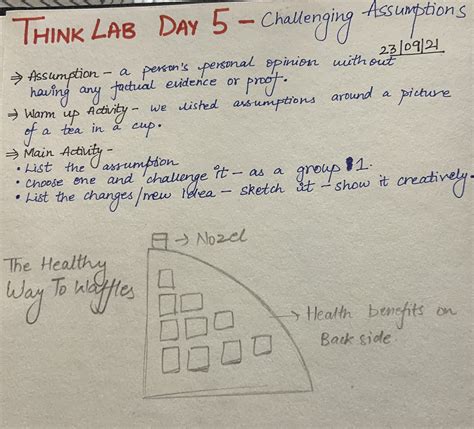 THINK LAB DAY 5 - Challenging Assumptions
23/09/21
⇒ Assumption - a person's personal opinion without
having any factual evidence or proof.
⇒ Warm up Activity - we listed assumptions around a picture
of a tea in a cup.
⇒ Main Activity -
• List the assumption
• Choose one and challenge it - as a group 1.
• List the changes/new idea - sketch it - show it creatively.
→ Nozel
The Healthy
Way To Waffles
→ Health benefits on
Back side.